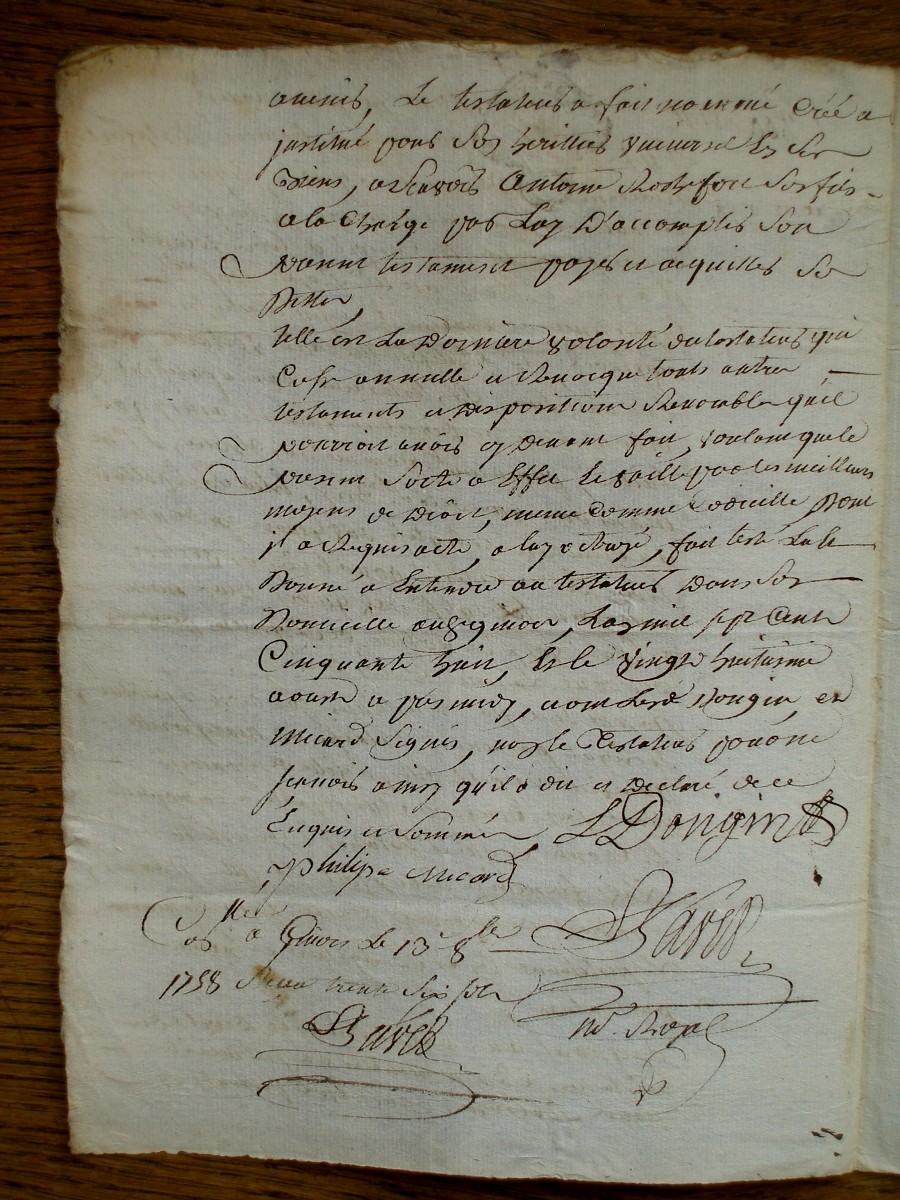 avenir, Le testateur a fait nommé créé a
institué pour Son herittier universel Les Si
siens, a scavoir Antoine Rochefort Son fils
a la Charge par Luy D'accomplir Son
present testament payer et acquitter Se
Dettes,
telle est La Derniere volonté du testateur qui
Casse annulle et Revocque touts autres
testaments et Dispositions Semblables qu'il
pourroit avoir cy Devant fait, voulant que le
present Sorte a Effet Et vaille par les meilleurs
moyens de Droit, meme Comme Codicille Dont
il a Requis acte, a luy octroyé, fait leu Releu
Donné a Entendre au testateur Dans Son
Domicille, L'an mil sept Cent
Cinquante huit, Et le vingt huitieme
aoust a pres midy, et ont Lesd Dongin, et
Micard Signés, non le Testateur pour ne
scavoir ainsy qu'il a dit et Declaré de ce
Enquis et Sommé, L Dongin
Philipe Micard
Con a Givors Le 13 8bre
1758 Reçu trente Six sols
Nre Royal